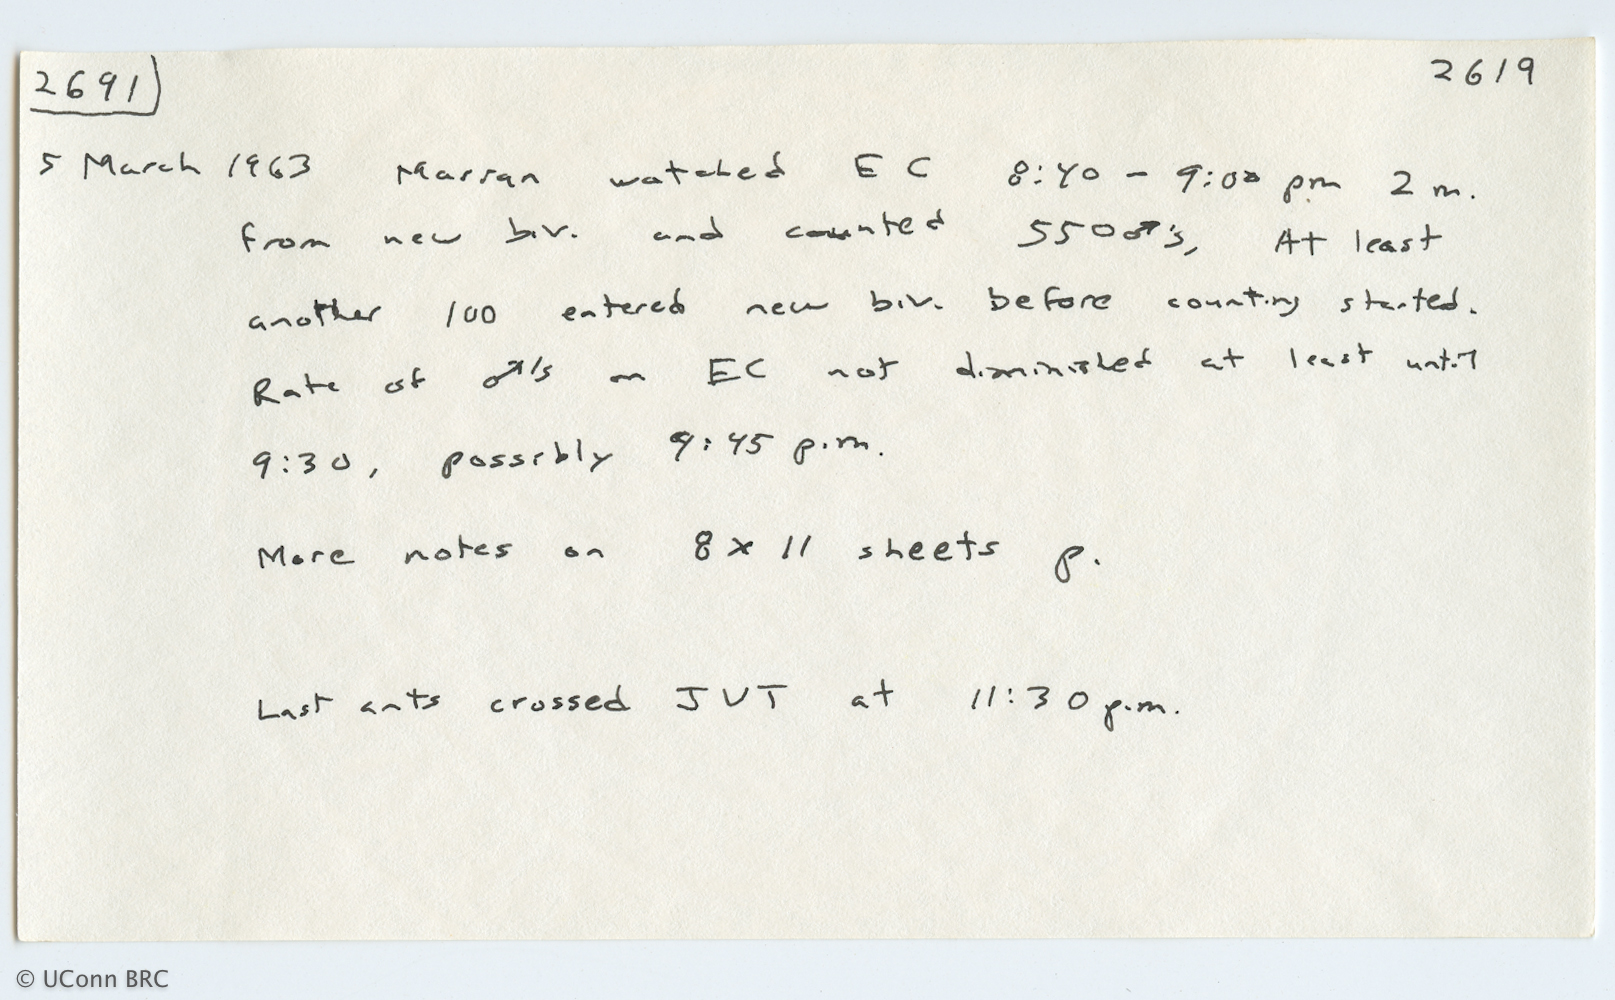 2691 2619
5 March 1963 Marsan watched E C 8:40 - 9:00 pm 2 m.
from new biv. and counted 550 ♂'s, At least
another 100 entered new biv. before counting started.
Rate of ♂'s on EC not diminished at least until
9:30, possibly 9:45 p.m.
More notes on 8 x 11 sheets p.
Last ants crossed JVT at 11:30 p.m.
© UConn BRC